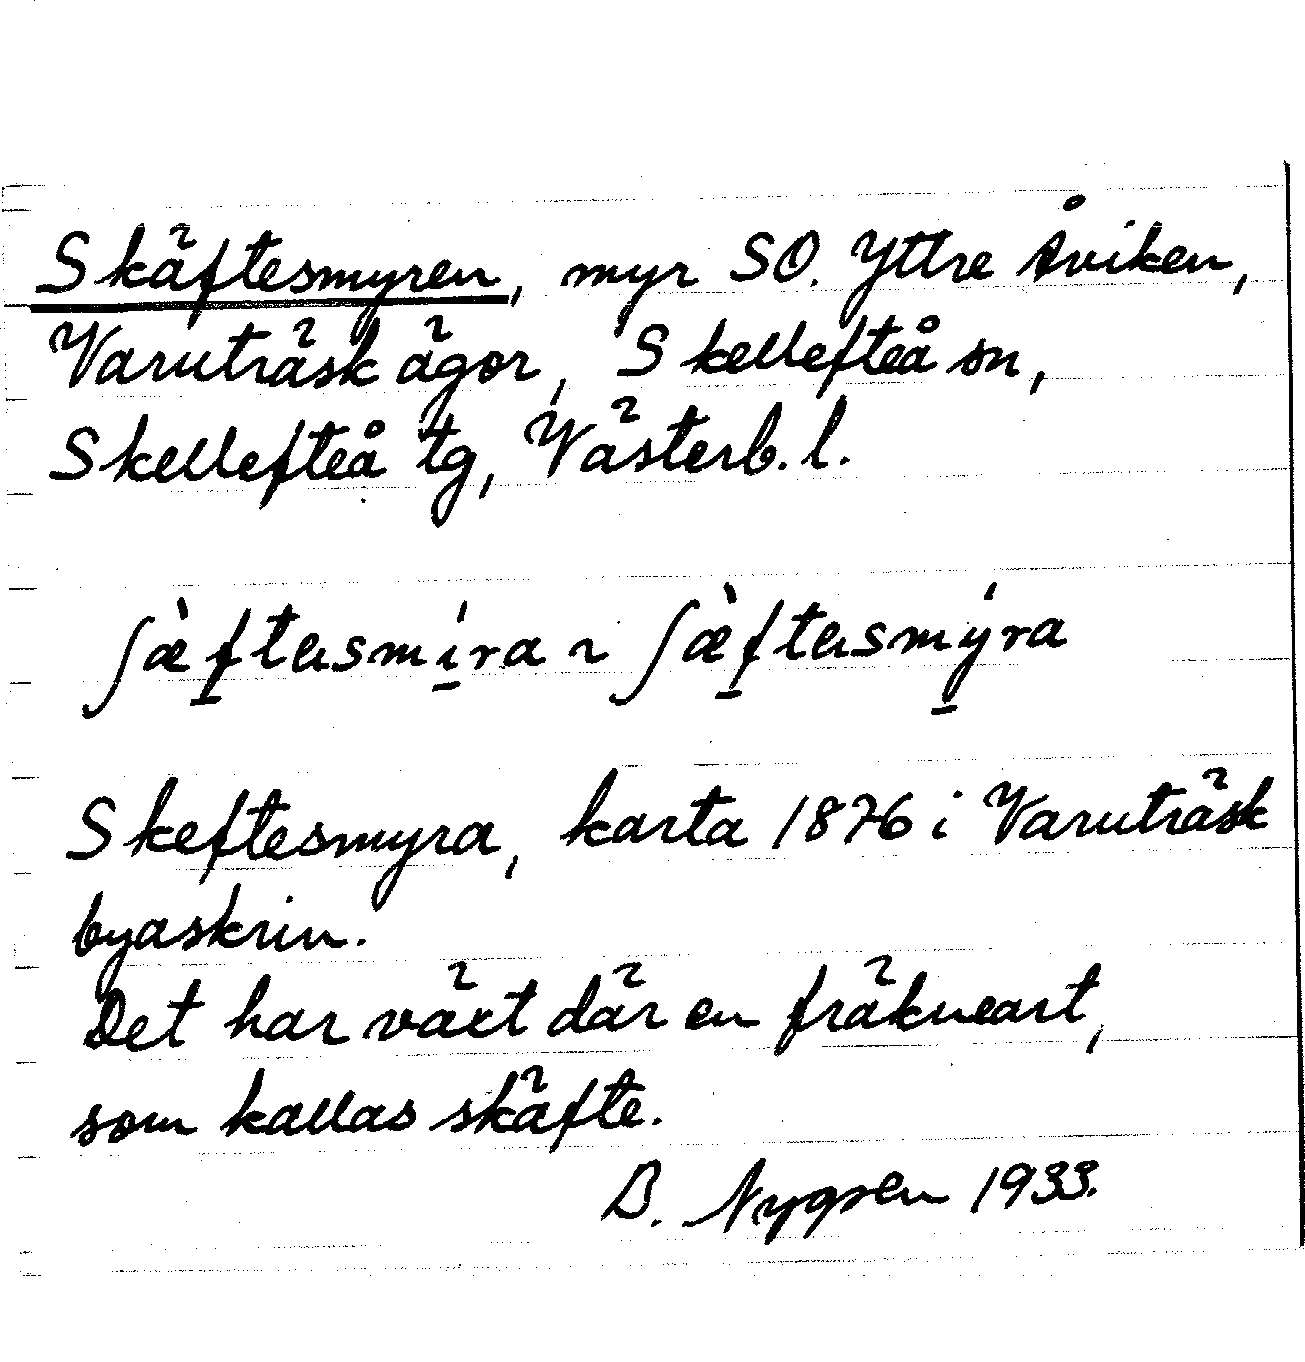 Skäftesmyren, myr SO. Yttre Åviken,
Varuträsk ägor, Skellefteå sn,
Skellefteå tg, Västerb. l.
ʃæ̀f̱tesmí̱ra ~ ʃæ̀f̱tesmý̱ra
Skeftesmyra, karta 1876 i Varuträsk
byaskrin.
Det har växt där en fräkneart,
som kallas skäfte.
B. Nygren 1933.